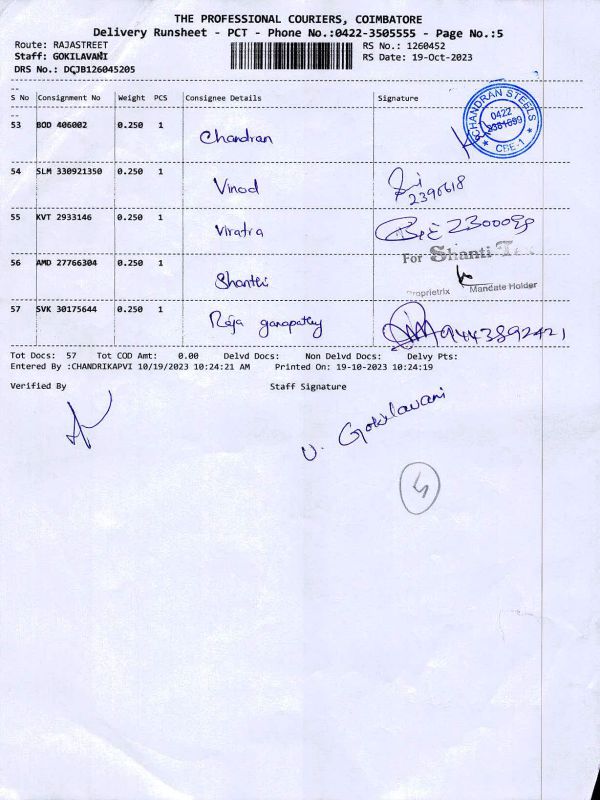 THE PROFESSIONAL COURIERS, COIMBATORE
Delivery Runsheet - PCT - Phone No.:0422-3505555 - Page No.:5
Route: RAJASTREET
RS No.: 1260452
Staff: GOKILAVANI
RS Date: 19-Oct-2023
DRS No.: DCJB126045205
S No Consignment No Weight PCS Consignee Details Signature
53 BOD 406002 0.250 1 Chandran
CHANDRAN STEELS
0422
CBE-1
54 SLM 330921350 0.250 1 Vinod
2390618
55 KVT 2933146 0.250 1 Viratra
56 AMD 27766304 0.250 1 Shanthi
For Shanti
Proprietrix Mandate Holder
57 SVK 30175644 0.250 1 Raja ganapathy 9443892421
Tot Docs: 57 Tot COD Amt: 0.00 Delvd Docs: Non Delvd Docs: Delvy Pts:
Entered By :CHANDRIKAPVI 10/19/2023 10:24:21 AM Printed On: 19-10-2023 10:24:19
Verified By Staff Signature
V. Gokilavani
5